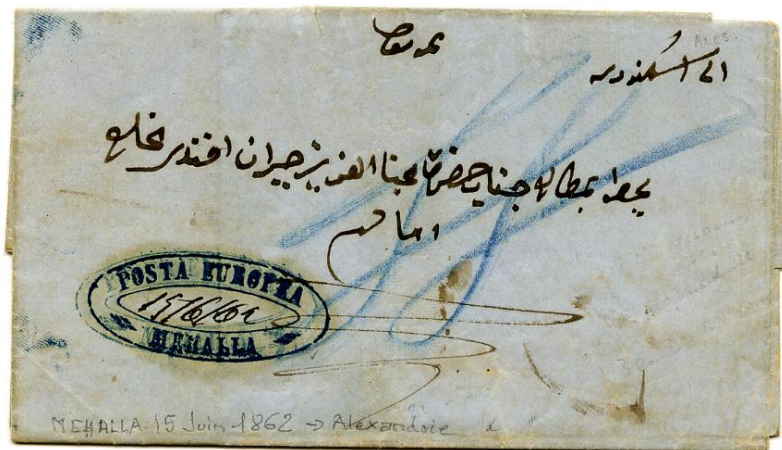 الى اسكندريه
يحظى بمطالعه جناب حضرة محبنا العزيز جبران افندى مخلع
دام
POSTA EUROPEA
15/6/62
MEHALLA
MEHALLA 15 Juin 1862 → Alexandrie